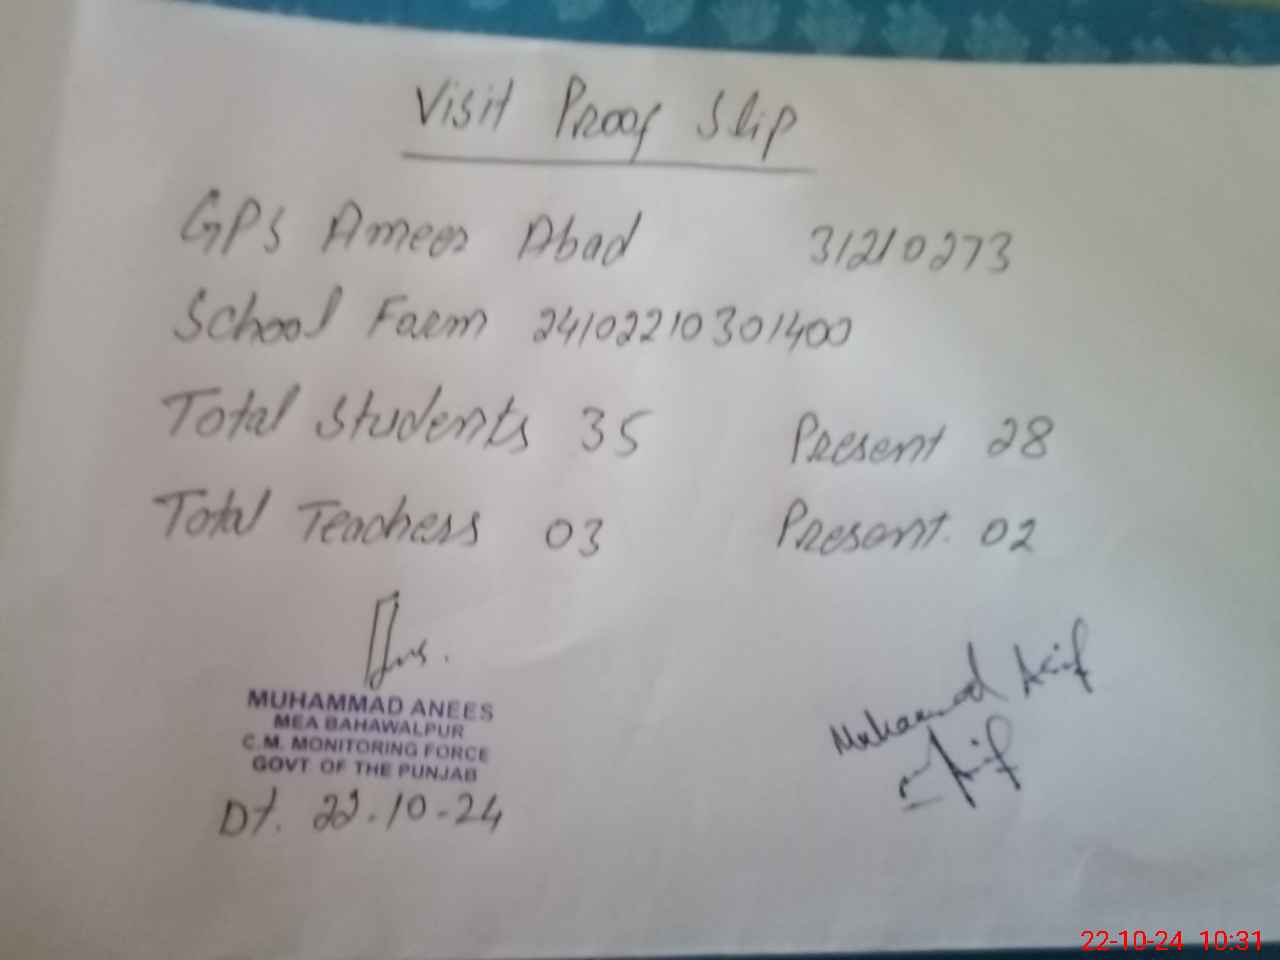 Visit Proof Slip
GPS Ameer Abad 31210273
School Farm 24102210301400
Total Students 35 Present 28
Total Teachers 03 Present. 02
MUHAMMAD ANEES
MEA BAHAWALPUR
C.M. MONITORING FORCE
GOVT OF THE PUNJAB
Dt. 22-10-24
Muhammad Asif
Asif
22-10-24 10:31